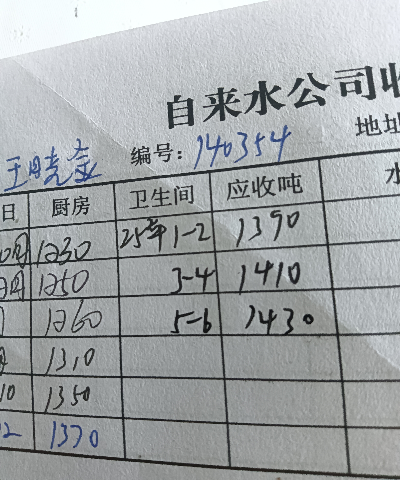 自来水公司收
王晓 编号: 140354 地址
日 厨房 卫生间 应收吨 水
0月 1230 25年1-2 1390
2月 1250 3-4 1410
1260 5-6 1430
1310
10 1350
12 1370